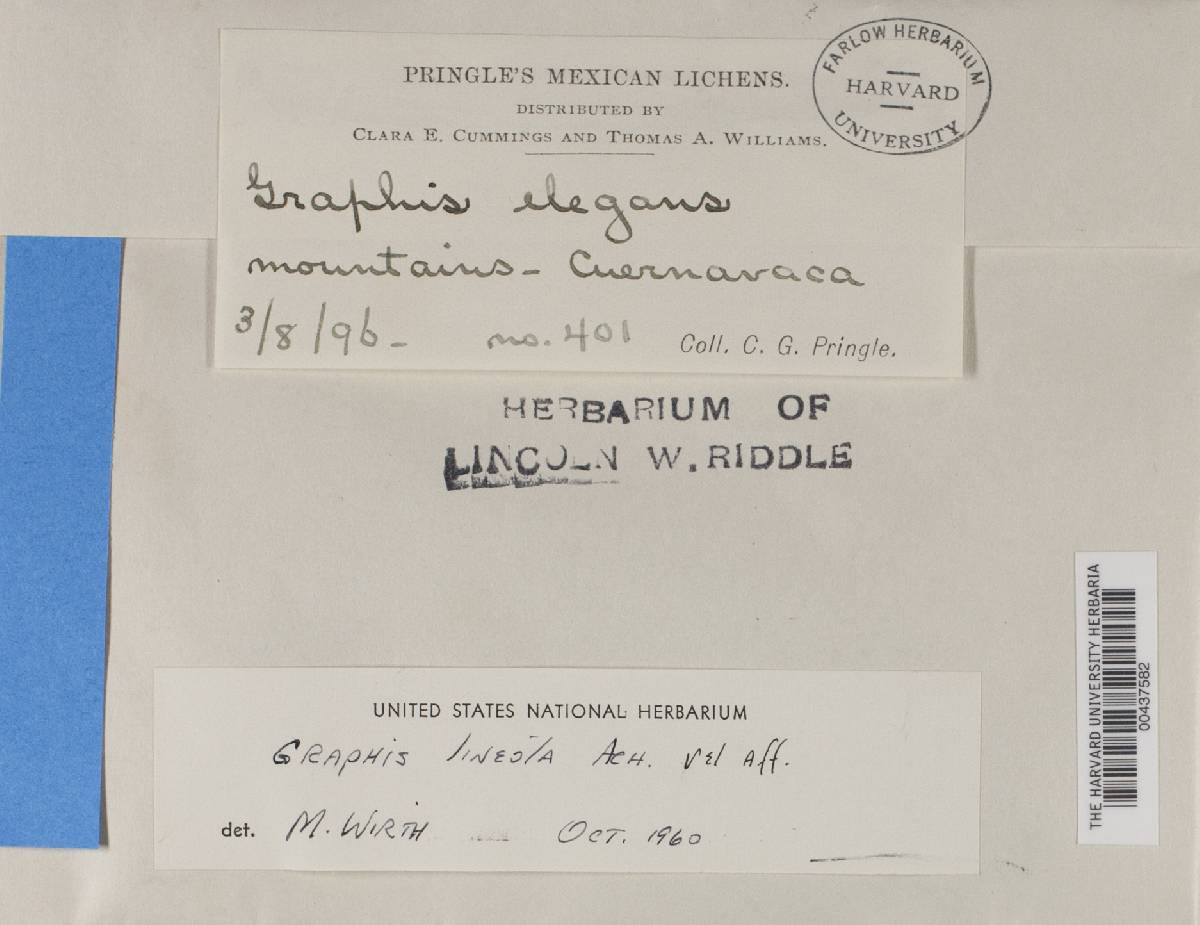 PRINGLE'S MEXICAN LICHENS.
DISTRIBUTED BY
CLARA E. CUMMINGS AND THOMAS A. WILLIAMS.
FARLOW HERBARIUM
HARVARD
UNIVERSITY
Graphis elegans
mountains - Cuernavaca
3/8/96 - no. 401 Coll. C. G. Pringle.
HERBARIUM OF
LINCOLN W. RIDDLE
THE HARVARD UNIVERSITY HERBARIA
00437582
UNITED STATES NATIONAL HERBARIUM
GRAPHIS lINEOlA ACH. vel Aff.
det. M. WIRTH OCT. 1960